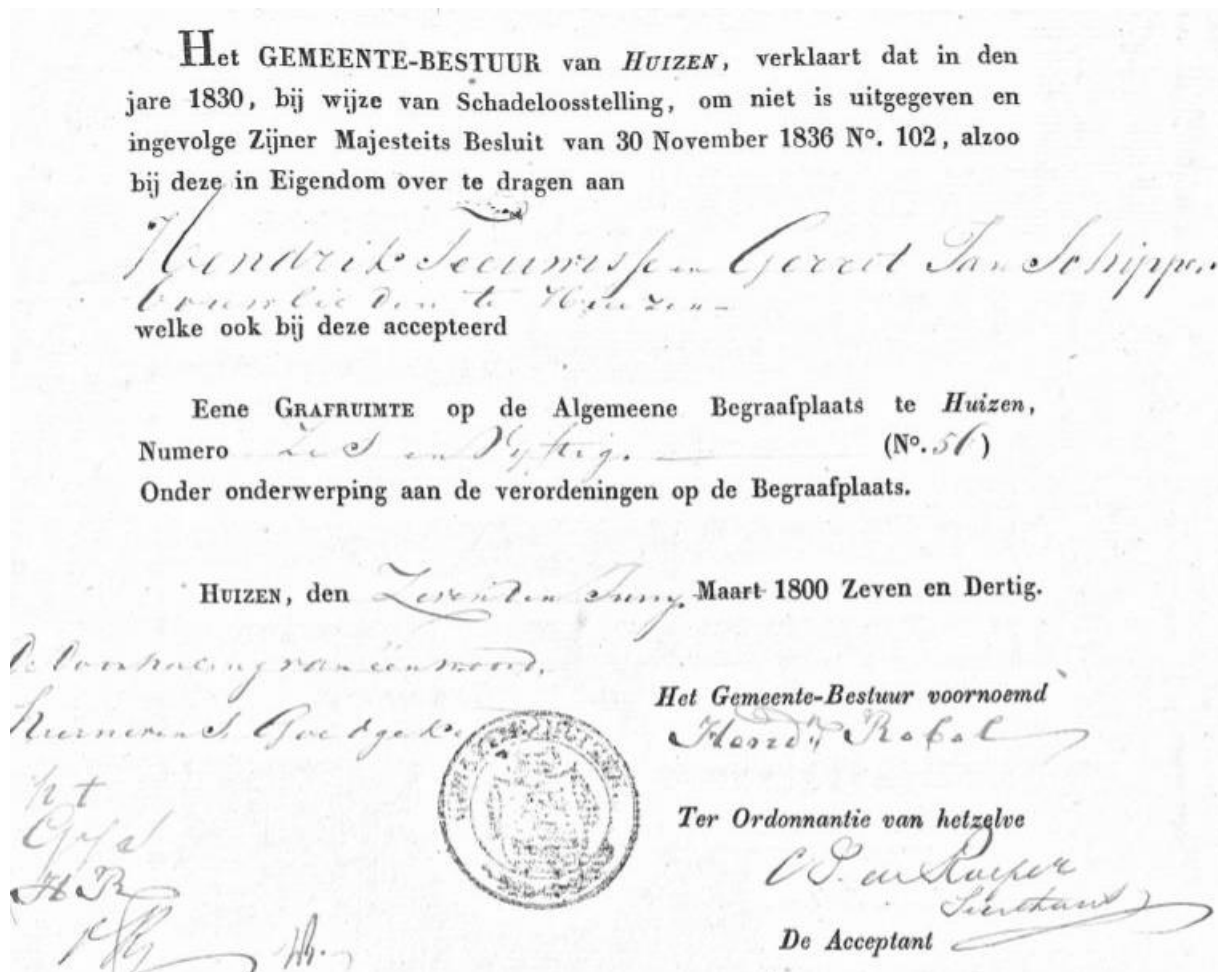 Het GEMEENTE-BESTUUR van HUIZEN, verklaart dat in den
jare 1830, bij wijze van Schadeloosstelling, om niet is uitgegeven en
ingevolge Zijner Majesteits Besluit van 30 November 1836 No. 102, alzoo
bij deze in Eigendom over te dragen aan
Hendrik Teeuwisse en Gerret Jan Schipper
te Huizen
welke ook bij deze accepteerd
Eene GRAFRUIMTE op de Algemeene Begraafplaats te Huizen,
Numero Zes en Vijftig. (No. 56)
Onder onderwerping aan de verordeningen op de Begraafplaats.
HUIZEN, den Zevenden Juny. Maart 1800 Zeven en Dertig.
De Doorhaling van één woord
Goedge
Het Gemeente-Bestuur voornoemd
Hend Rebel
Ter Ordonnantie van hetzelve
HR
De Acceptant